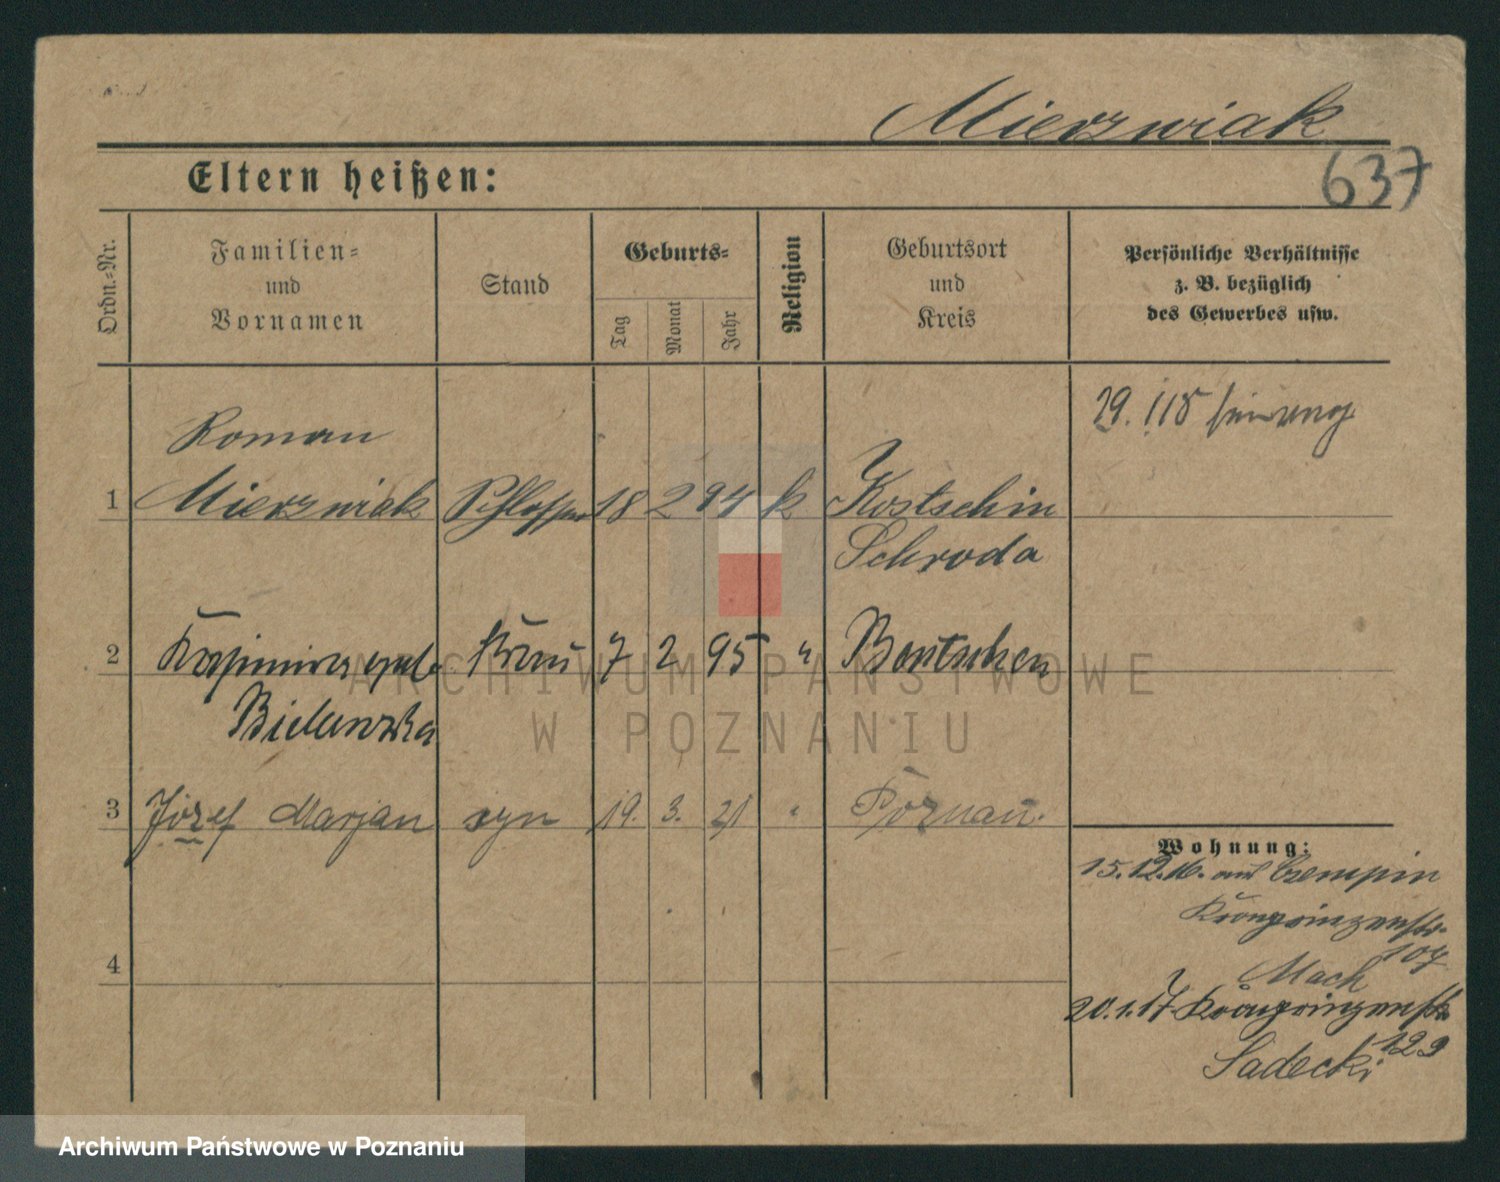 Mierzwiak
637
Eltern heißen:
Ordn.-Nr.
Familien-
und
Vornamen
Stand
Geburts-
Tag
Monat
Jahr
Religion
Geburtsort
und
Kreis
Persönliche Verhältnisse
z. B. bezüglich
des Gewerbes usw.
Roman
1 Mierzwiak Schlosser 18 2 94 k Kostschin
Schroda
2 Kasimira geb. Frau 7 2 95 " Bentschen
3 Józef Marjan syn 19. 3. 21 " Poznań.
4
Wohnung:
15.12.16. aus Czempin
Kronprinzenstr.
107
Mach
20.1.17 Kronprinzenstr.
129
Sadecki
ARCHIWUM PAŃSTWOWE
W POZNANIU
Archiwum Państwowe w Poznaniu